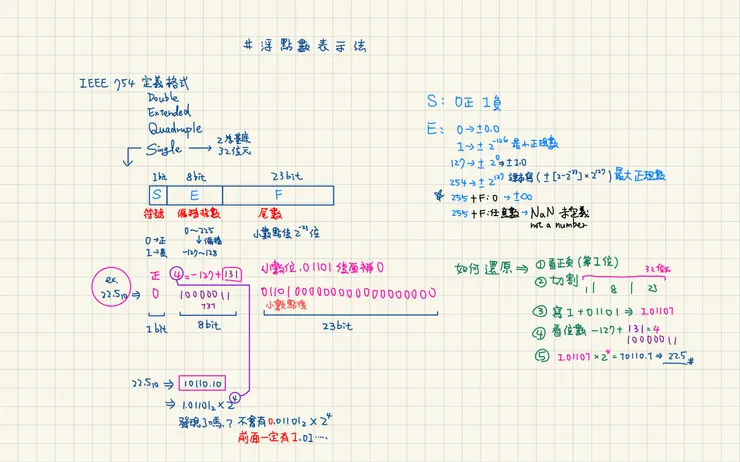 # 浮點數表示法
IEEE 754 定義格式
Double
Extended
Quadruple
Single → 2為基底
32位元
1bit 8bit 23bit
S E F
符號 偏移指數 尾數
0→正 0~225 小數點後 2⁻²³位
↓偏移
1→負 -127~128
ex.
22.5₁₀ ⇒
正 4 = -127 + 131 小數位 .01101 後面補 0
0 10000011 01101000000000000000000
131 小數點後
1bit 8bit 23bit
22.5₁₀ ⇒ 10110.10
⇒ 1.01101₂ × 2⁴
發現了嗎? 不會有 0.01101₂ × 2⁴
前面一定有 1.01.....
S: 0正 1負
E: 0 → ±0.0
1 → ± 2⁻¹²⁶ 最小正規數
127 → ± 2⁰ → ±1.0
254 → ± 2¹²⁷ (±[2-2⁻²³]×2¹²⁷) 最大正規數
255 + F: 0 → ±∞
255 + F: 任意數 → NaN 未定義
not a number
如何還原 → ① 看正負 (第1位)
32位元
② 切割 1 | 8 | 23
③ 寫 1 + 01101 ⇒ 1.01101
④ 看位數 -127 + 131 = 4
10000011
⑤ 1.01101 × 2⁴ = 10110.1 ⇒ 22.5 #